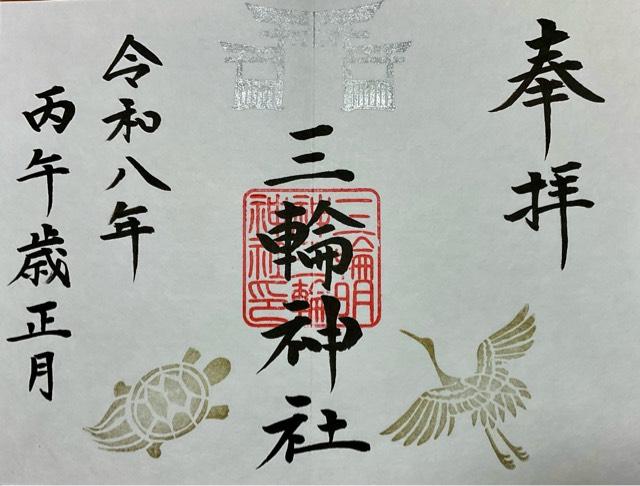 奉拝
三輪神社
令和八年
丙午歳正月